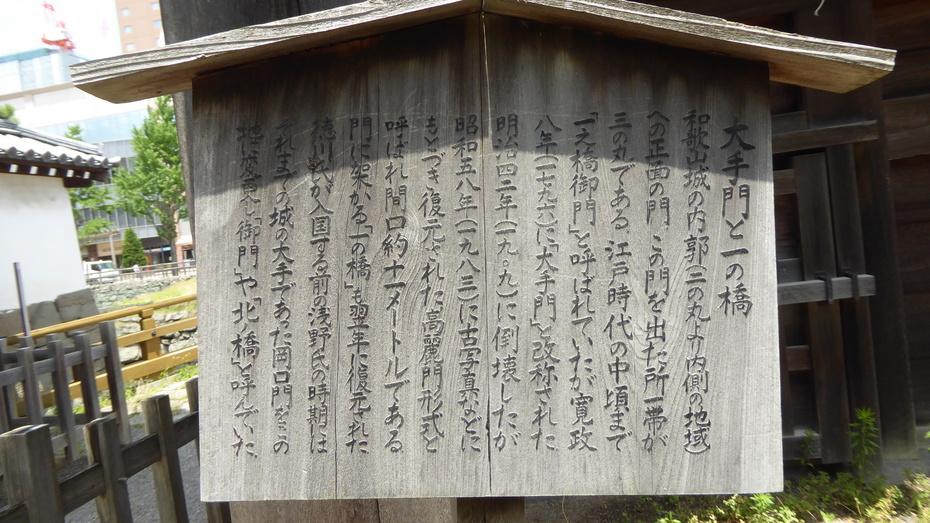 大手門と一の橋
和歌山城の内郭(二の丸より内側の地域)
への正面の門、この門を出た所一帯が
三の丸である。江戸時代の中頃まで
「一之橋御門」と呼ばれていたが寛政
八年(一七九六)に「大手門」と改称された
明治四二年(一九〇九)に倒壊したが
昭和五八年(一九八三)に古写真などに
もとづき復元された高麗門形式と
呼ばれ間口約十一メートルである
門に架かる「一の橋」も翌年に復元された
徳川氏が入国する前の浅野氏の時期は
それまでの城の大手であった岡口門をこの
地に変え「御門」や「北ノ橋」と呼んでいた。